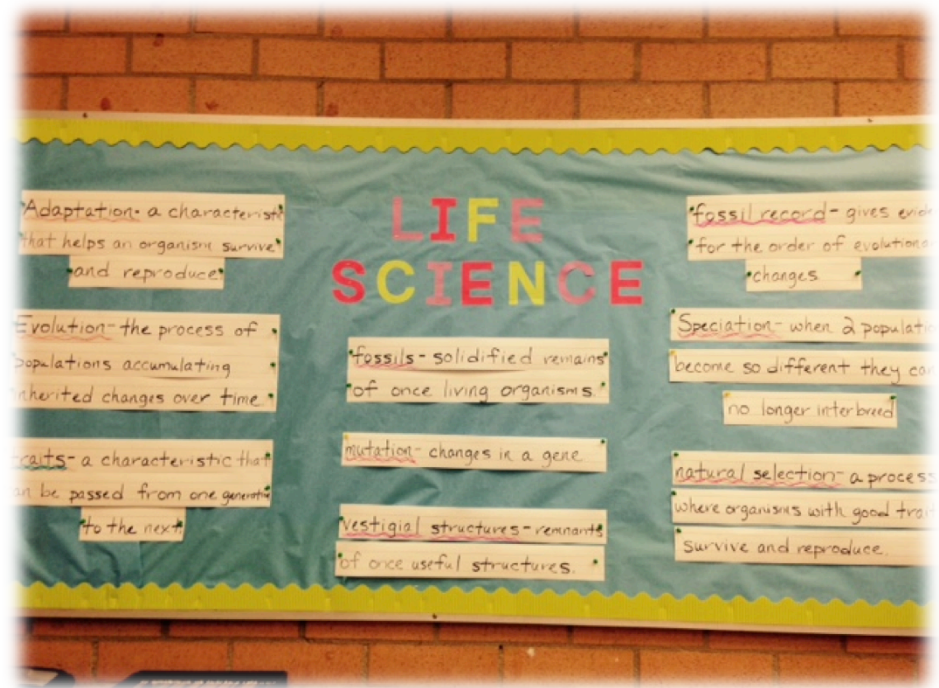 LIFE
SCIENCE
Adaptation- a characterist
that helps an organism survive
and reproduce
Evolution- the process of
populations accumulating
inherited changes over time.
traits- a characteristic that
an be passed from one generation
to the next
fossils- solidified remains
of once living organisms.
mutation- changes in a gene
vestigial structures- remnants
of once useful structures.
fossil record- gives evid
for the order of evolutiona
changes.
Speciation- when 2 populatio
become so different they can
no longer interbreed
natural selection- a process
where organisms with good trait
survive and reproduce.